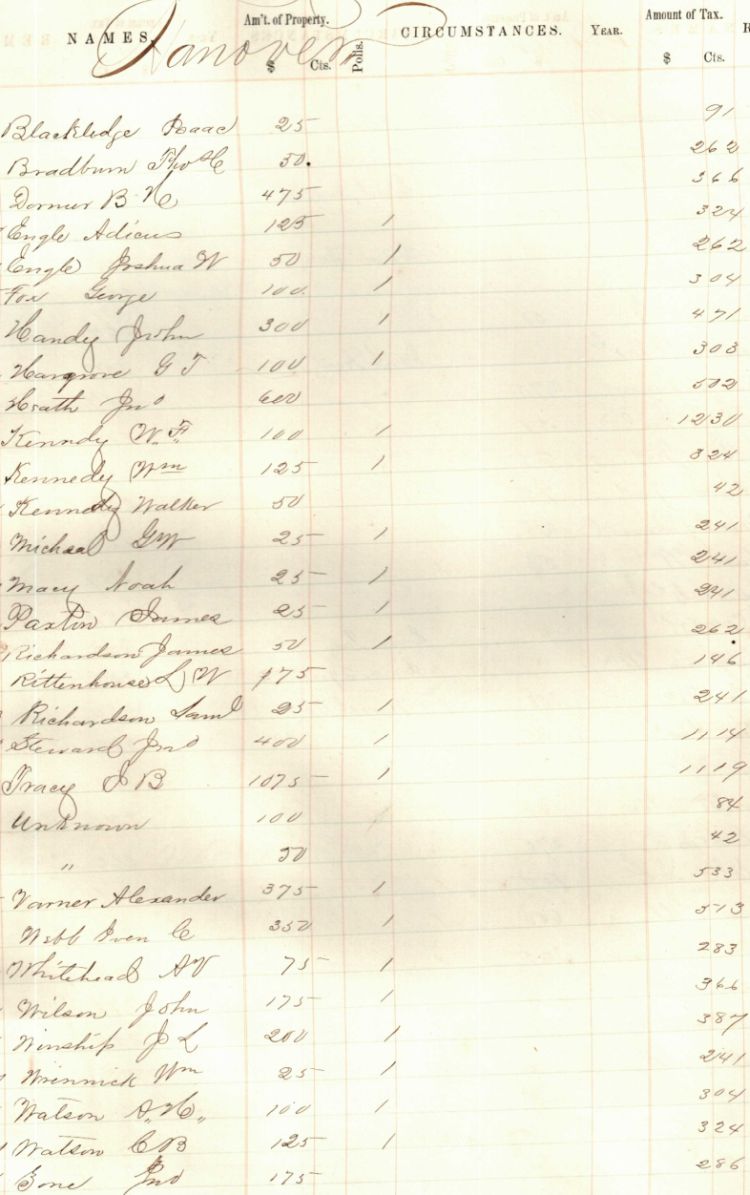 NAMES. Hanover Am't. of Property. $ Cts. Polls. CIRCUMSTANCES. YEAR. Amount of Tax. $ Cts.
Blackledge Isaac 25 91
Bradburn Thos C 50. 262
Dormer B H 475 366
Engle Adicus 125 1 324
Engle Joshua W 50 1 262
Fox George 100 1 304
Handy John 300 1 471
Hargrove G T 100 1 303
Heath Jno 600 502
Kennedy W. F. 100 1 1230
Kennedy Wm 125 1 324
Kennedy Walker 50 42
Michael G W 25 1 241
Macy Noah 25 1 241
Paxton James 25 1 241
Richardson James 50 1 262
Rittenhouse L W 175 146
Richardson Saml 25 1 241
Steward Jno 400 1 1114
Tracy J B 1075 1 1119
Unknown 100 84
" 50 42
Varner Alexander 375 1 533
Webb Iven C 350 1 513
Whitehead A V 75 1 283
Wilson John 175 1 366
Winship J L 200 1 387
Wm 25 1 241
Watson A. H. 100 1 304
Watson C B 125 1 324
Zone Jno 175 286